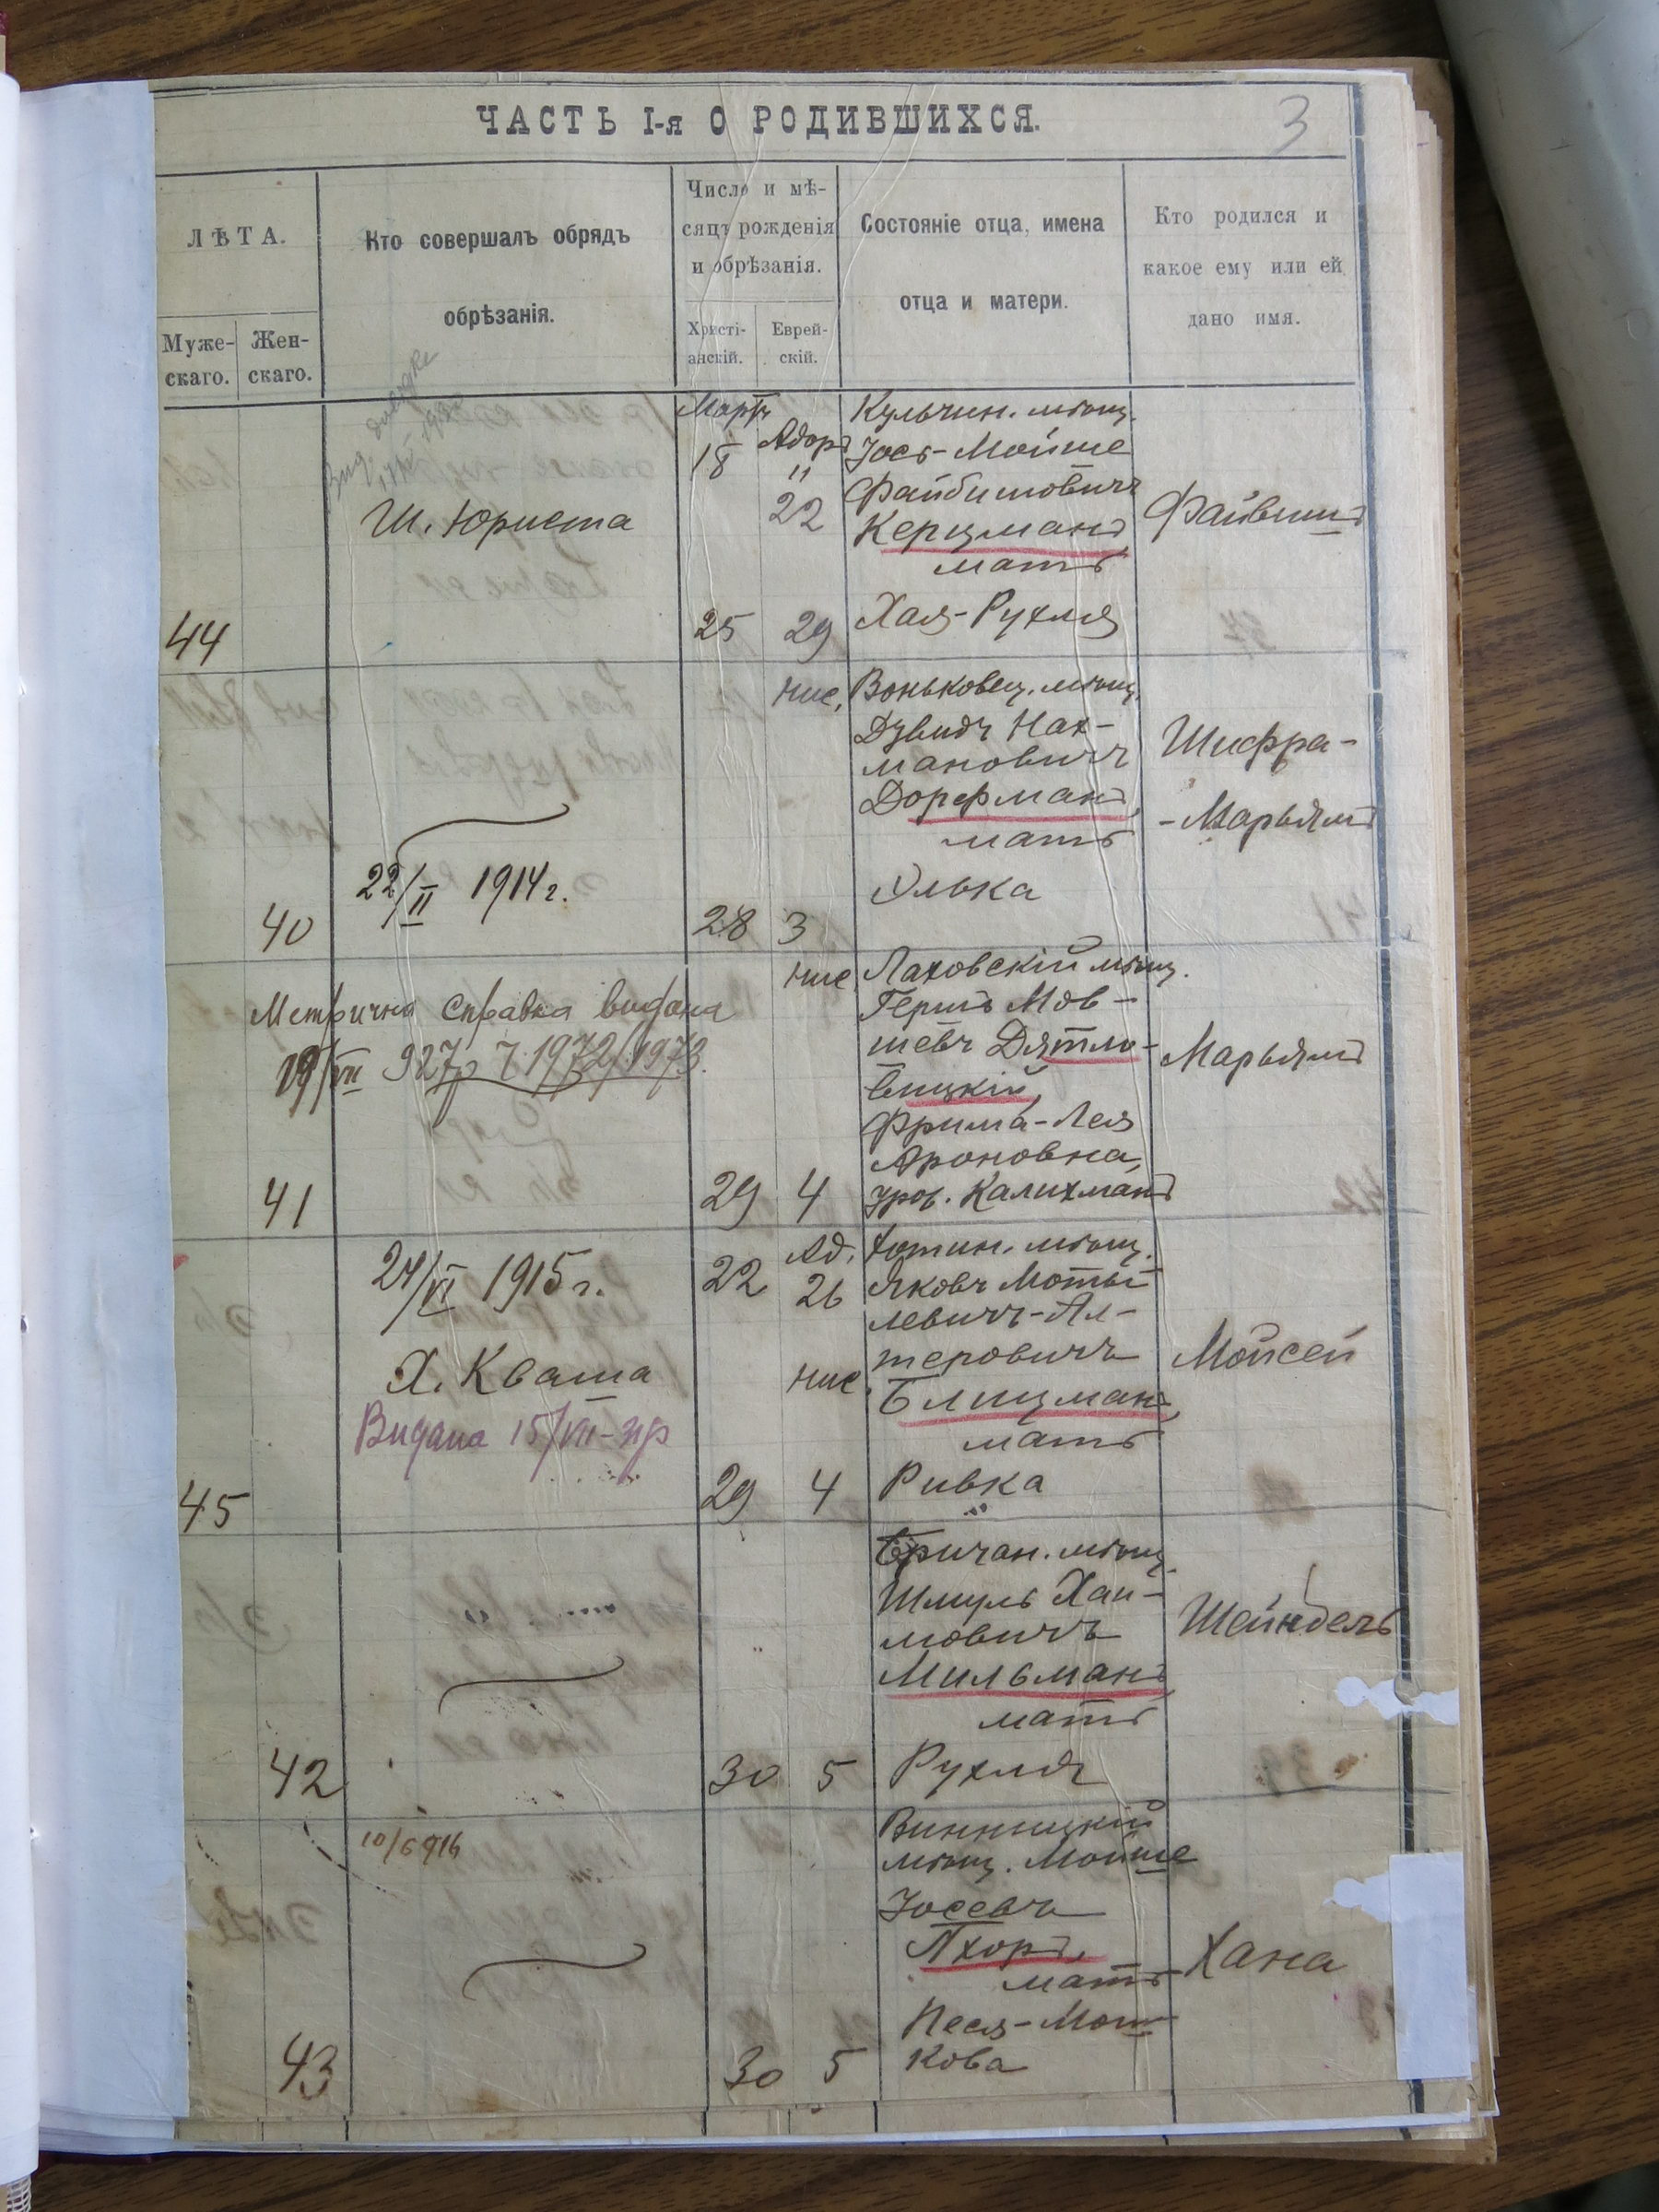 ЧАСТЬ I-я О РОДИВШИХСЯ.
3
ЛѢТА.
Муже-
скаго.
Жен-
скаго.
Кто совершалъ обрядъ
обрѣзанія.
Число и мѣ-
сяцъ рожденія
и обрѣзанія.
Христі-
анскій.
Еврей-
скій.
Состояніе отца, имена
отца и матери.
Кто родился и
какое ему или ей
дано имя.
44
Ш. Юриста
Мартъ
18
25
Адоръ
II
22
29
Кульчин. мѣщ.
Іось-Мойше
Файбишовичъ
Керцманъ
мать
Хая-Рухля
Файвишъ
40
22/II 1914 г.
28
Нис.
3
Воньковец. мѣщ.
Дувидъ Нах-
мановичъ
Дорфманъ,
мать
Улька
Шифра-
-Марьямъ
41
Метрична справка видана
19/VII 927р 7.1972/1973.
29
Нис
4
Ляховскій мѣщ.
Гершъ Мов-
шевъ Дятло-
вицкій,
Фрима-Лея
Ароновна,
урож. Калихманъ
Марьямъ
45
24/VI 1915 г.
Х. Кваша
Видана 15/VII-31р
22
29
Ад.
26
Нис.
4
Хотин. мѣщ.
Яковъ Моты
левичъ-Ал-
теровичъ
Блицман,
мать
Ривка
Мойсей
42
30
5
Бричан. мѣщ
Шмуль Хаи-
мовичъ
Мильманъ,
мать
Рухля
Шейндель
43
10/6 916
30
5
Винницкій
мѣщ. Мойше
Іосевъ
Пхоръ,
мать
Песя-Мош
кова
Хана